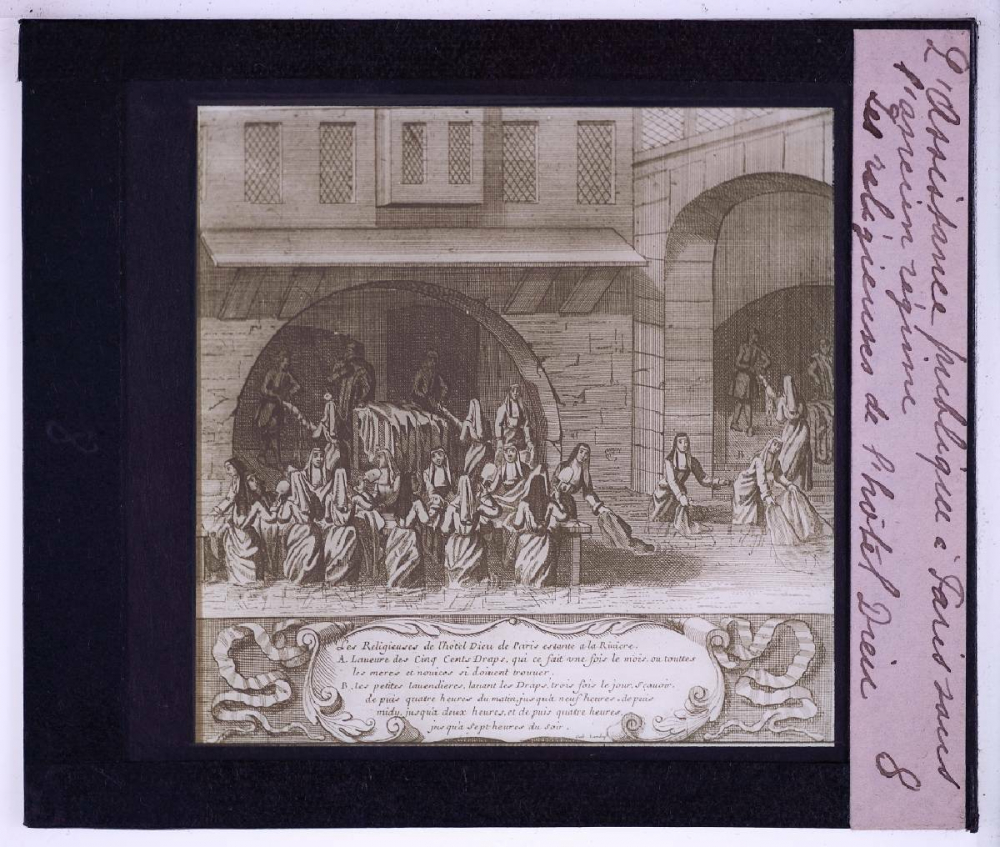 L'Assistance publique à Paris sous
l'ancien régime
Les religieuses de l'hôtel Dieu
8
Les Religieuses de l'hotel Dieu de Paris estante a la Riviere.
A. Laueure des Cinq Cents Draps, qui ce fait vne fois le mois, ou touttes
les meres et nouices si doiuent trouuer.
B. les petites lauendieres, lauant les Draps, trois fois le jour, Scauoir.
de puis quatre heures du matin, jusqu'a neuf heures, de puis
midy, jusqu'a deux heures, et de puis quatre heures
jusqu'a sept heures du soir.